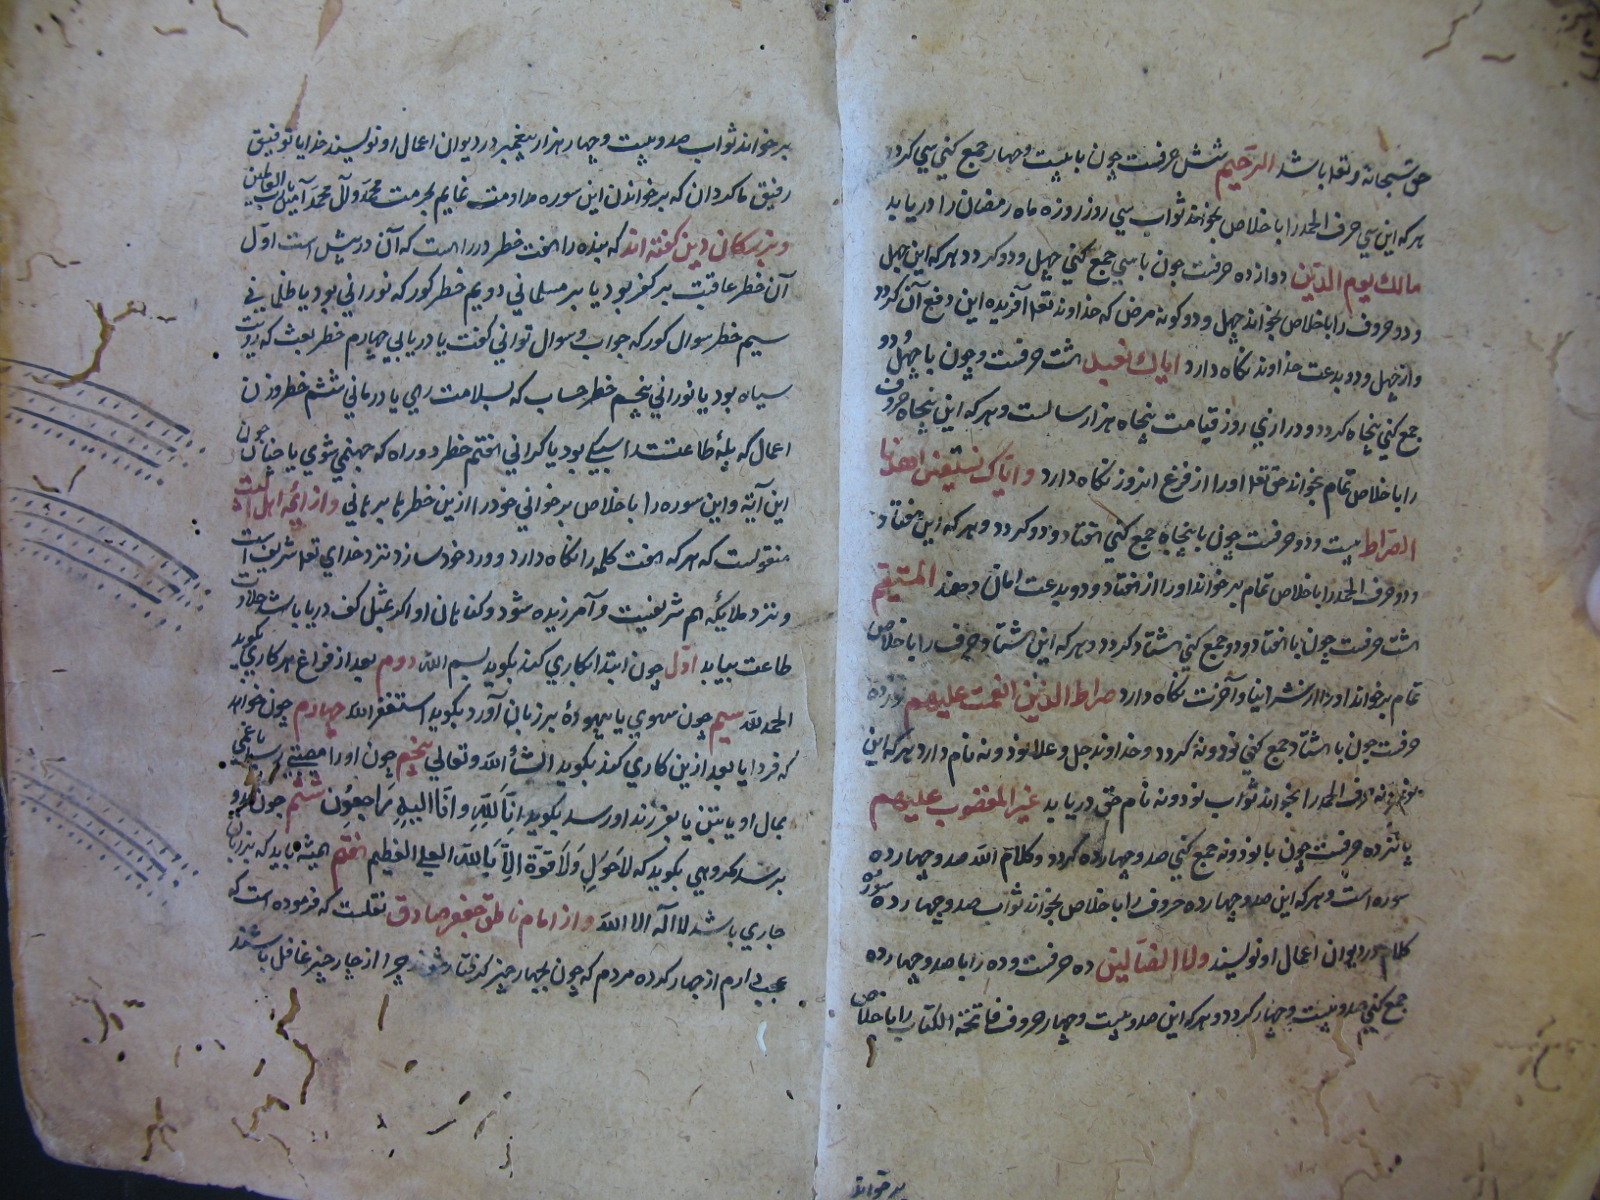 حق سبحانه و تعا باشد الرحیم شش حرفست چون با بیست و چهار جمع کنی سی کردد
هر که این سی حرف الحمد را با خلاص بخواند ثواب سی روز روزه ماه رمضان را دریابد
مالك یوم الدین دوازده حرفست چون با سی جمع کنی چهل و دو کردد و هر که این چهل
و دو حروف را با خلاص بخواند چهل و دو کونه مرض که خداوند تعا آفریده این دفع آن کردد
و از چهل و دو بدعت خداوند نکاه دارد ایاك نعبد هشت حرفست و چون با چهل و دو
جمع کنی پنجاه کردد و درازی روز قیامت پنجاه هزار سالست و هر که این پنجاه حروف
را با خلاص تمام بخواند حق تعا او را از فزع انروز نکاه دارد و ایاك نستعین اهدنا
الصراط بیست و دو حرفست چون با پنجاه جمع کنی هفتاد و دو کردد و هر که این هفتاد
و دو حرف الحمد را با خلاص تمام برخواند او را از هفتاد و دو بدعت امان دهند المستقیم
هشت حرفست چون با هفتاد و دو جمع کنی هشتاد کردد و هر که این هشتاد حرف را با خلاص
تمام برخواند او را از شر دنیا و آخرت نکاه دارد صراط الذین انعمت علیهم نوزده
حرفست چون با هشتاد جمع کنی نود و نه کردد و خداوند جل و علا نود و نه نام دارد هر که این
نود و نه حرف الحمد را بخواند ثواب نود و نه نام حق دریابد غیر المغضوب علیهم
پانزده حرفست چون با نود و نه جمع کنی صد و چهارده کردد و کلام الله صد و چهارده
سوره است و هر که این صد و چهارده حروف را با خلاص بخواند ثواب صد و چهارده سوره
کلام در دیوان اعمال او نویسند ولا الضالین ده حرفست و ده را با صد و چهارده
جمع کنی صد و بیست و چهار کردد و هر که این صد و بیست و چهار حروف فاتحة الکتاب را با خلاص
برخواند
برخواند ثواب صد و بیست و چهار هزار پیغمبر در دیوان اعمال او نویسند خدایا توفیق
رفیق ما کردان که برخواندن این سوره مداومت نمایم بحرمت محمد و آل محمد آمین یا رب العالمین
و بزرکان دین کفته اند که بنده را هفت خطر در راهست که آن در پیش است اول
آن خطر عاقبت بر کفر بود یا بر مسلمانی دویم خطر کور که نورانی بود یا ظلمانی
سیم خطر سوال کور که جواب و سوال توانی کفت یا دریابی چهارم خطر بعث که رویت
سیاه بود یا نورانی پنجم خطر حساب که بسلامت رهی یا درمانی ششم خطر وزن
اعمال که پلهٔ طاعتت سبکی بود یا کرانی هفتم خطر دو راه که جهنمی شوی یا جنانی چون
این آیة و این سوره را با خلاص برخوانی خود را ازین خطرها برهانی و از ائمه اهل بیت
منقولست که هر که هفت کلمه را نکاه دارد و ورد خود سازد نزد خدای تعا شریف است
و نزد ملایکه هم شریفست و آمرزیده شود و کناهان او اکر بمثل کف دریا باشد حلاوت
طاعت بیابد اول چون ابتدا بکاری کند بکوید بسم الله دوم بعد از فراغ هر کاری بکوید
الحمد لله سیم چون سهوی یا بیهودهٔ بر زبان آورد بکوید استغفر الله چهارم چون خواهد
که فردا یا بعد ازین کاری کند بکوید انشأ الله وتعالی پنجم چون او را مصیبتی رسد یا غمی
بمال او یا بتن یا بفرزند او رسد بکوید إنا لله وانا الیه راجعون ششم چون او را
برسد مکروهی بکوید که لا حول ولا قوة إلا بالله العلی العظیم هفتم همیشه باید که بر زبان
جاری باشد لا اله الا الله و از امام ناطق جعفر صادق نقلست که فرموده است که
عجب دارم از چهار کرده مردم که چون بچهار چیز کرفتار شوند چرا از چار چیز غافل باشند